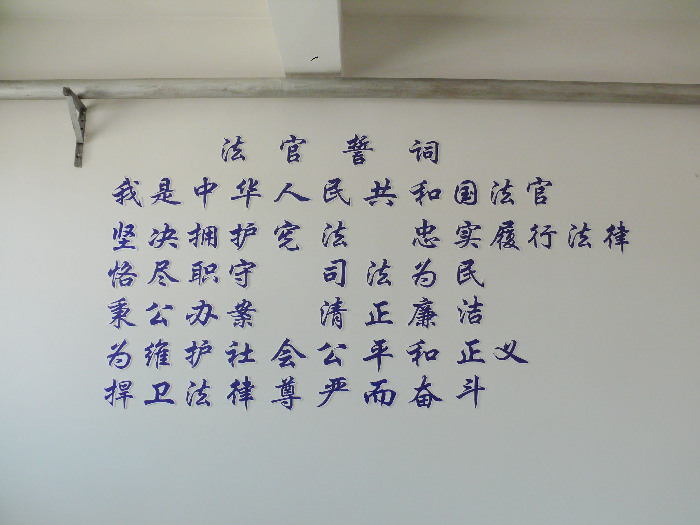 法官誓词
我是中华人民共和国法官
坚决拥护宪法 忠实履行法律
恪尽职守 司法为民
秉公办案 清正廉洁
为维护社会公平和正义
捍卫法律尊严而奋斗